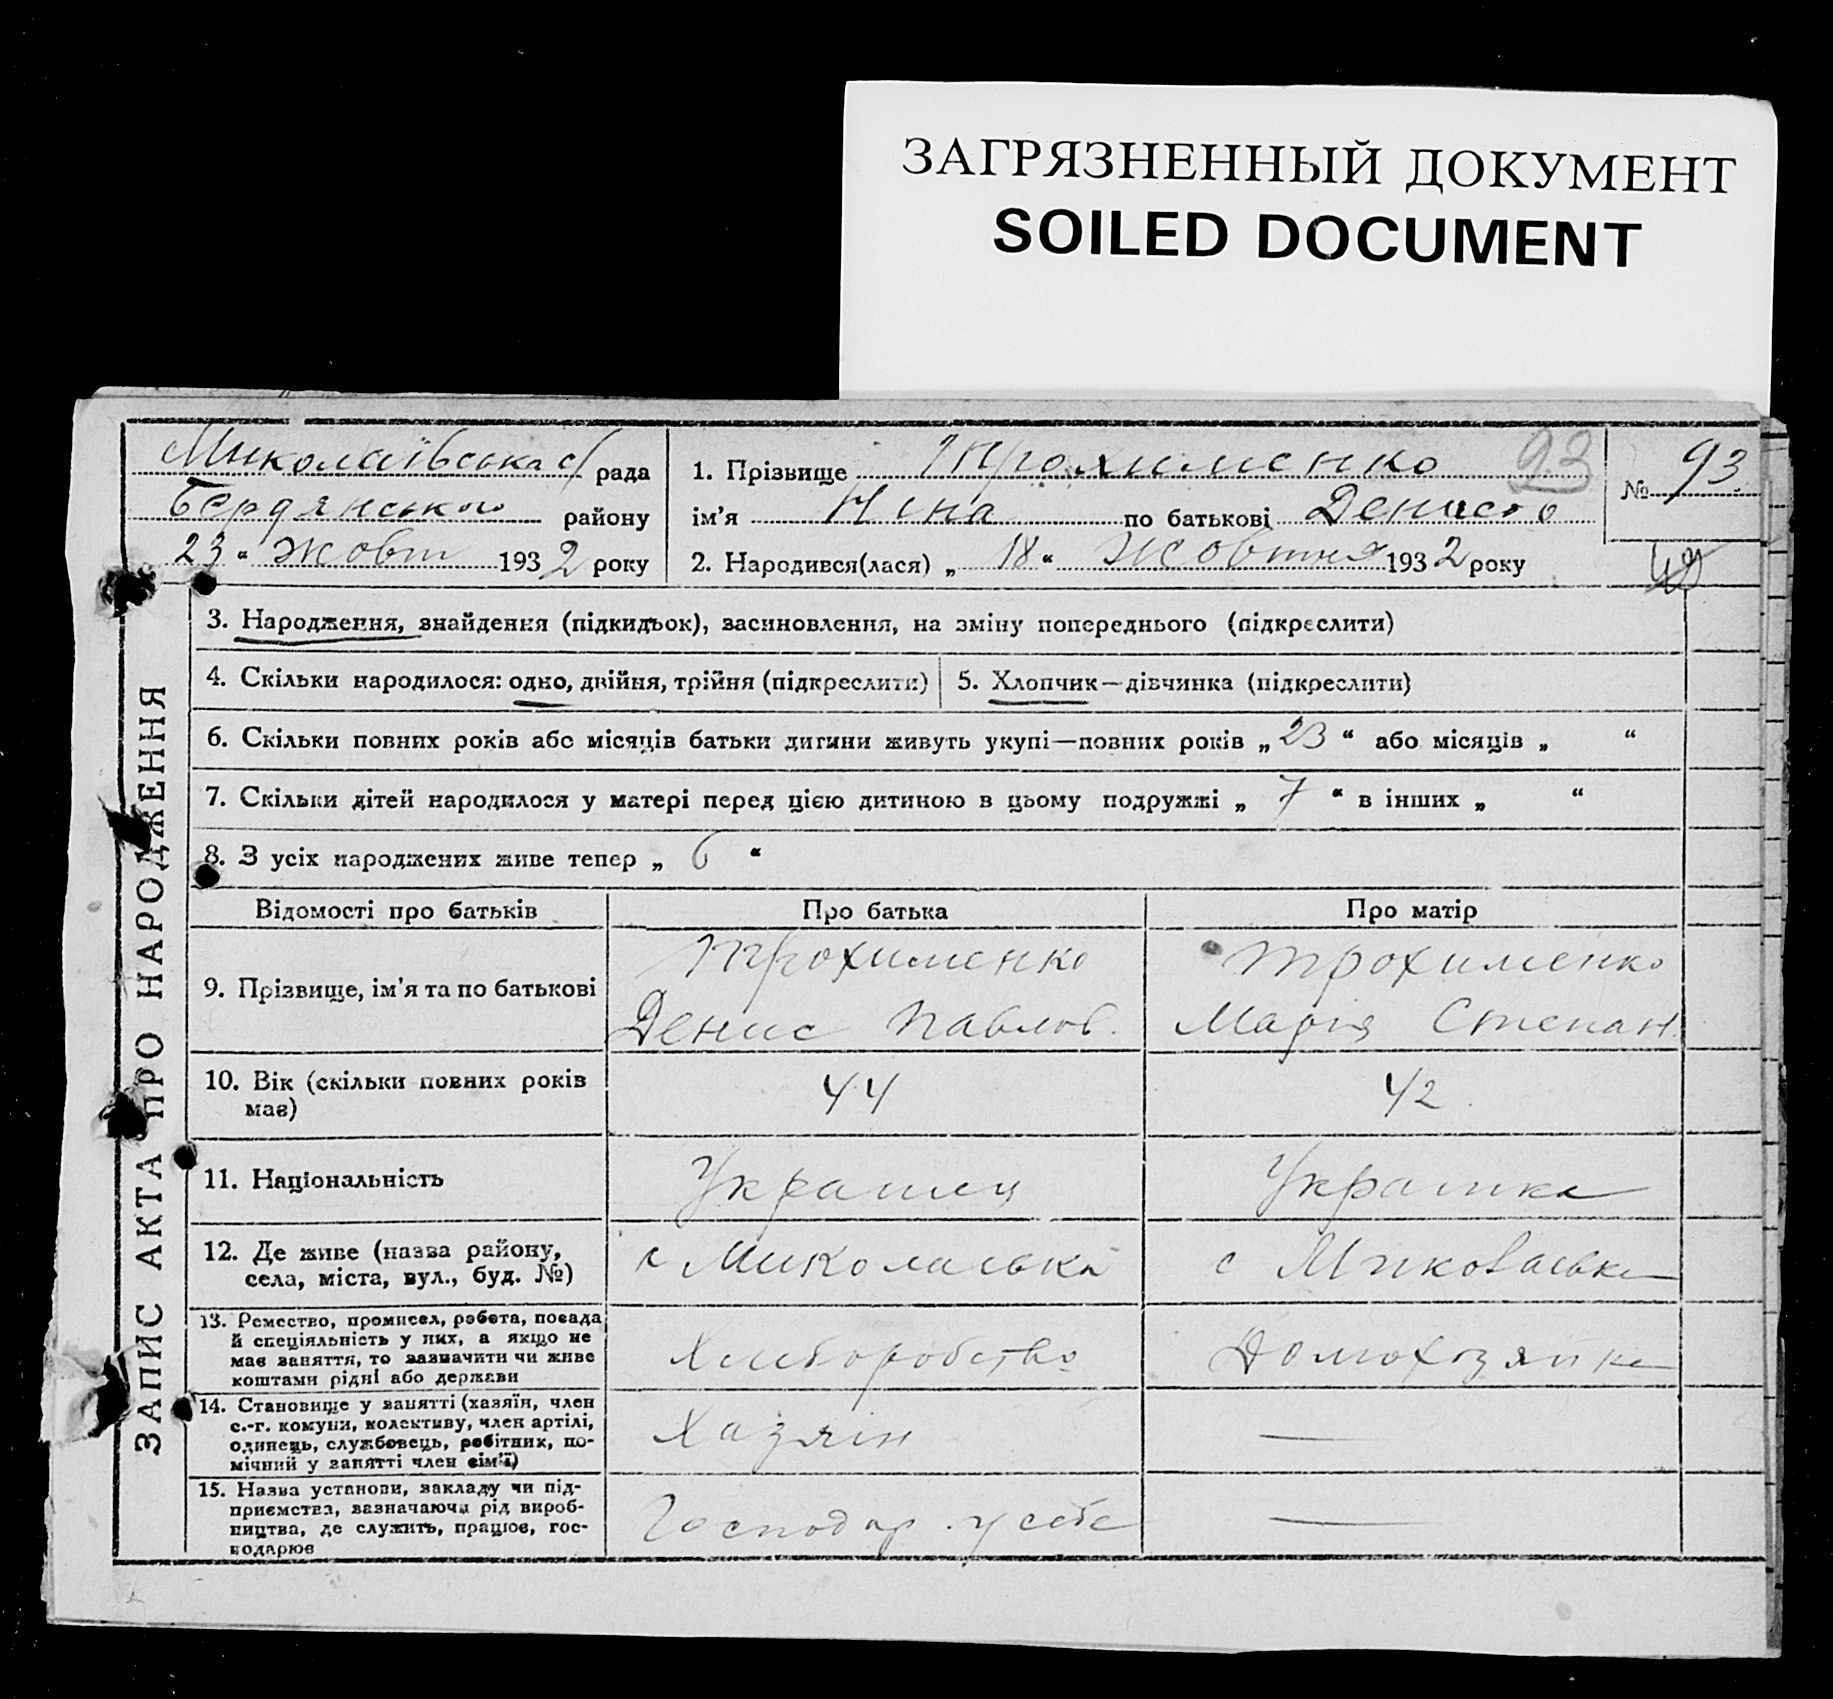 ЗАГРЯЗНЕННЫЙ ДОКУМЕНТ
SOILED DOCUMENT
Миколаївська с/рада
Бердянського району
23 “ Жовт 1932 року
1. Прізвище Трохименко 93
ім’я Ніна по батькові
2. Народився(лася) „ 18 “ Жовтня 1932 року
№ 93
ЗАПИС АКТА ПРО НАРОДЖЕННЯ
3. Народження, знайдення (підкидьок), засиновлення, на зміну попереднього (підкреслити)
4. Скільки народилося: одно, двійня, трійня (підкреслити)
5. Хлопчик—дівчинка (підкреслити)
6. Скільки повних років або місяців батьки дитини живуть укупі—повних років „ 23 “ або місяців „ “
7. Скільки дітей народилося у матері перед цією дитиною в цьому подружжі „ 7 “ в інших „ “
8. З усіх народжених живе тепер „ 6 “
Відомості про батьків
Про батька
Про матір
9. Прізвище, ім’я та по батькові
Трохименко
Денис Павлов.
Трохименко
Марія Степан.
10. Вік (скільки повних років
має)
44
42
11. Національність
Українец
Українка
12. Де живе (назва району,
села, міста, вул., буд. №)
с
с
13. Ремество, промисел, робота, посада
й спеціяльність у них, а якщо не
має заняття, то зазначити чи живе
коштами рідні або держави
Хліборобство
Домохозяйка
14. Становище у занятті (хазяїн, член
с.-г. комуни, колективу, член артілі,
одинець, службовець, робітник, по-
мічний у занятті член сім’ї)
Хазяін
—
15. Назва установи, закладу чи під-
приємства, зазначаючи рід вироб-
ництва, де служить, працює, гос-
подарює
Господар. у себе
—